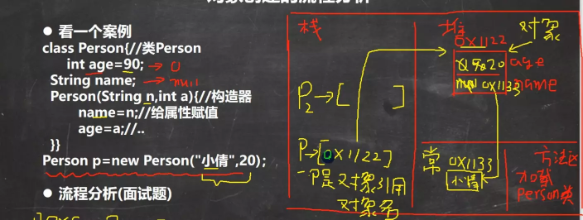 ● 看一个案例
class Person{//类Person
int age=90; → 0
String name; → null
Person(String n,int a){//构造器
name=n;//给属性赋值
age=a;//..
}}
Person p=new Person("小倩",20);
● 流程分析(面试题)
栈
P2→[ ]
P→[0X1122]
P是对象引用
对象名
堆
对象
0X1122
20 age
null 0X1133 name
常
0X1133
小倩
方法区
加载
Person类